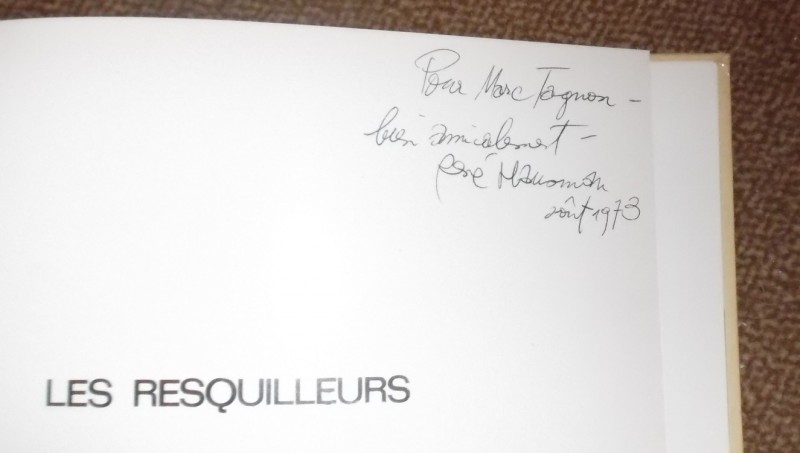 Pour Marc Tagnon -
bien amicalement -
René Hausman
août 1973
LES RESQUILLEURS